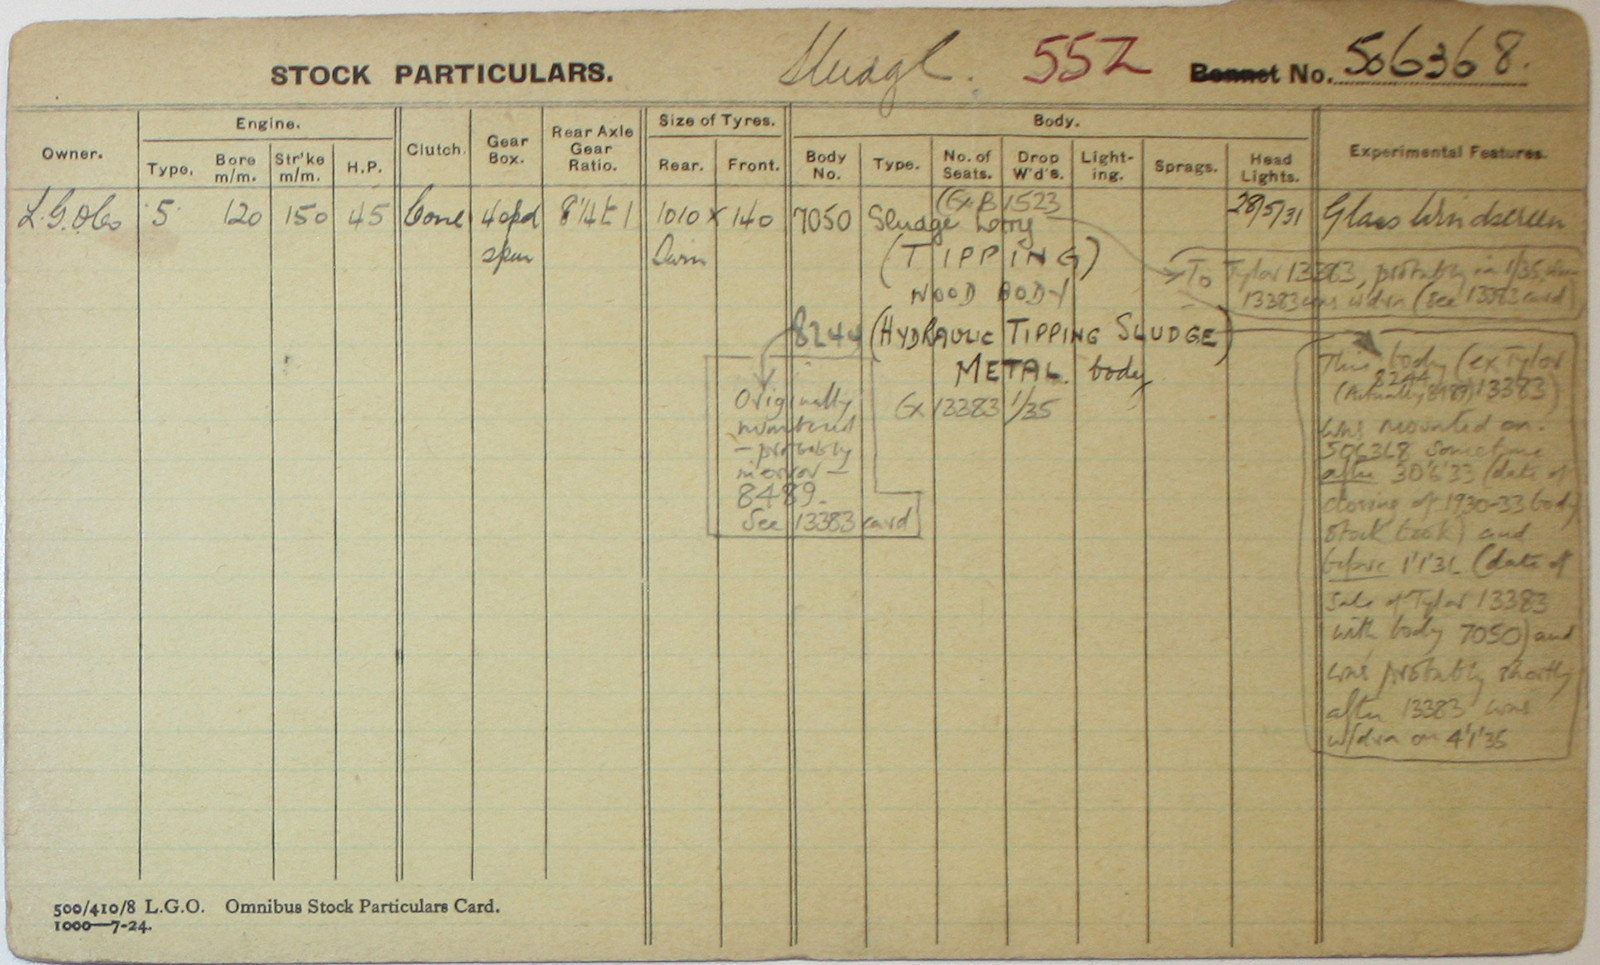 STOCK PARTICULARS. Sludge. 55Z Bonnet No. 506368.
Owner. Engine. Clutch. Gear Box. Rear Axle Gear Ratio. Size of Tyres. Body. Experimental Features.
Type. Bore m/m. Str'ke m/m. H.P. Rear. Front. Body No. Type. No. of Seats. Drop W'd's. Light-ing. Sprags. Head Lights.
(Ex B 1523
L.G.O.Co 5 120 150 45 Cone 4 spd 8¼ to 1 1010 x 140 7050 Sludge Lorry 28/5/31 Glass Windscreen
spur Twin (TIPPING)
To Tylor 13383, probably in 1/35, when
13383 was w/drn (see 13383 card)
WOOD BODY
8244 (HYDRAULIC TIPPING SLUDGE)
METAL. body
Ex 13383 1/35
Originally
numbered
– probably
in error –
8489.
See 13383 card
This body (ex Tylor
8244
(Actually 8489) 13383)
was mounted on
506368 sometime
after 30'6'33 (date of
closing of 1930-33 body
stock book) and
before 1'1'36 (date of
sale of Tylor 13383
with body 7050) and
was probably shortly
after 13383 was
w/drn on 4'1'35
500/410/8 L.G.O. Omnibus Stock Particulars Card.
1000—7-24.